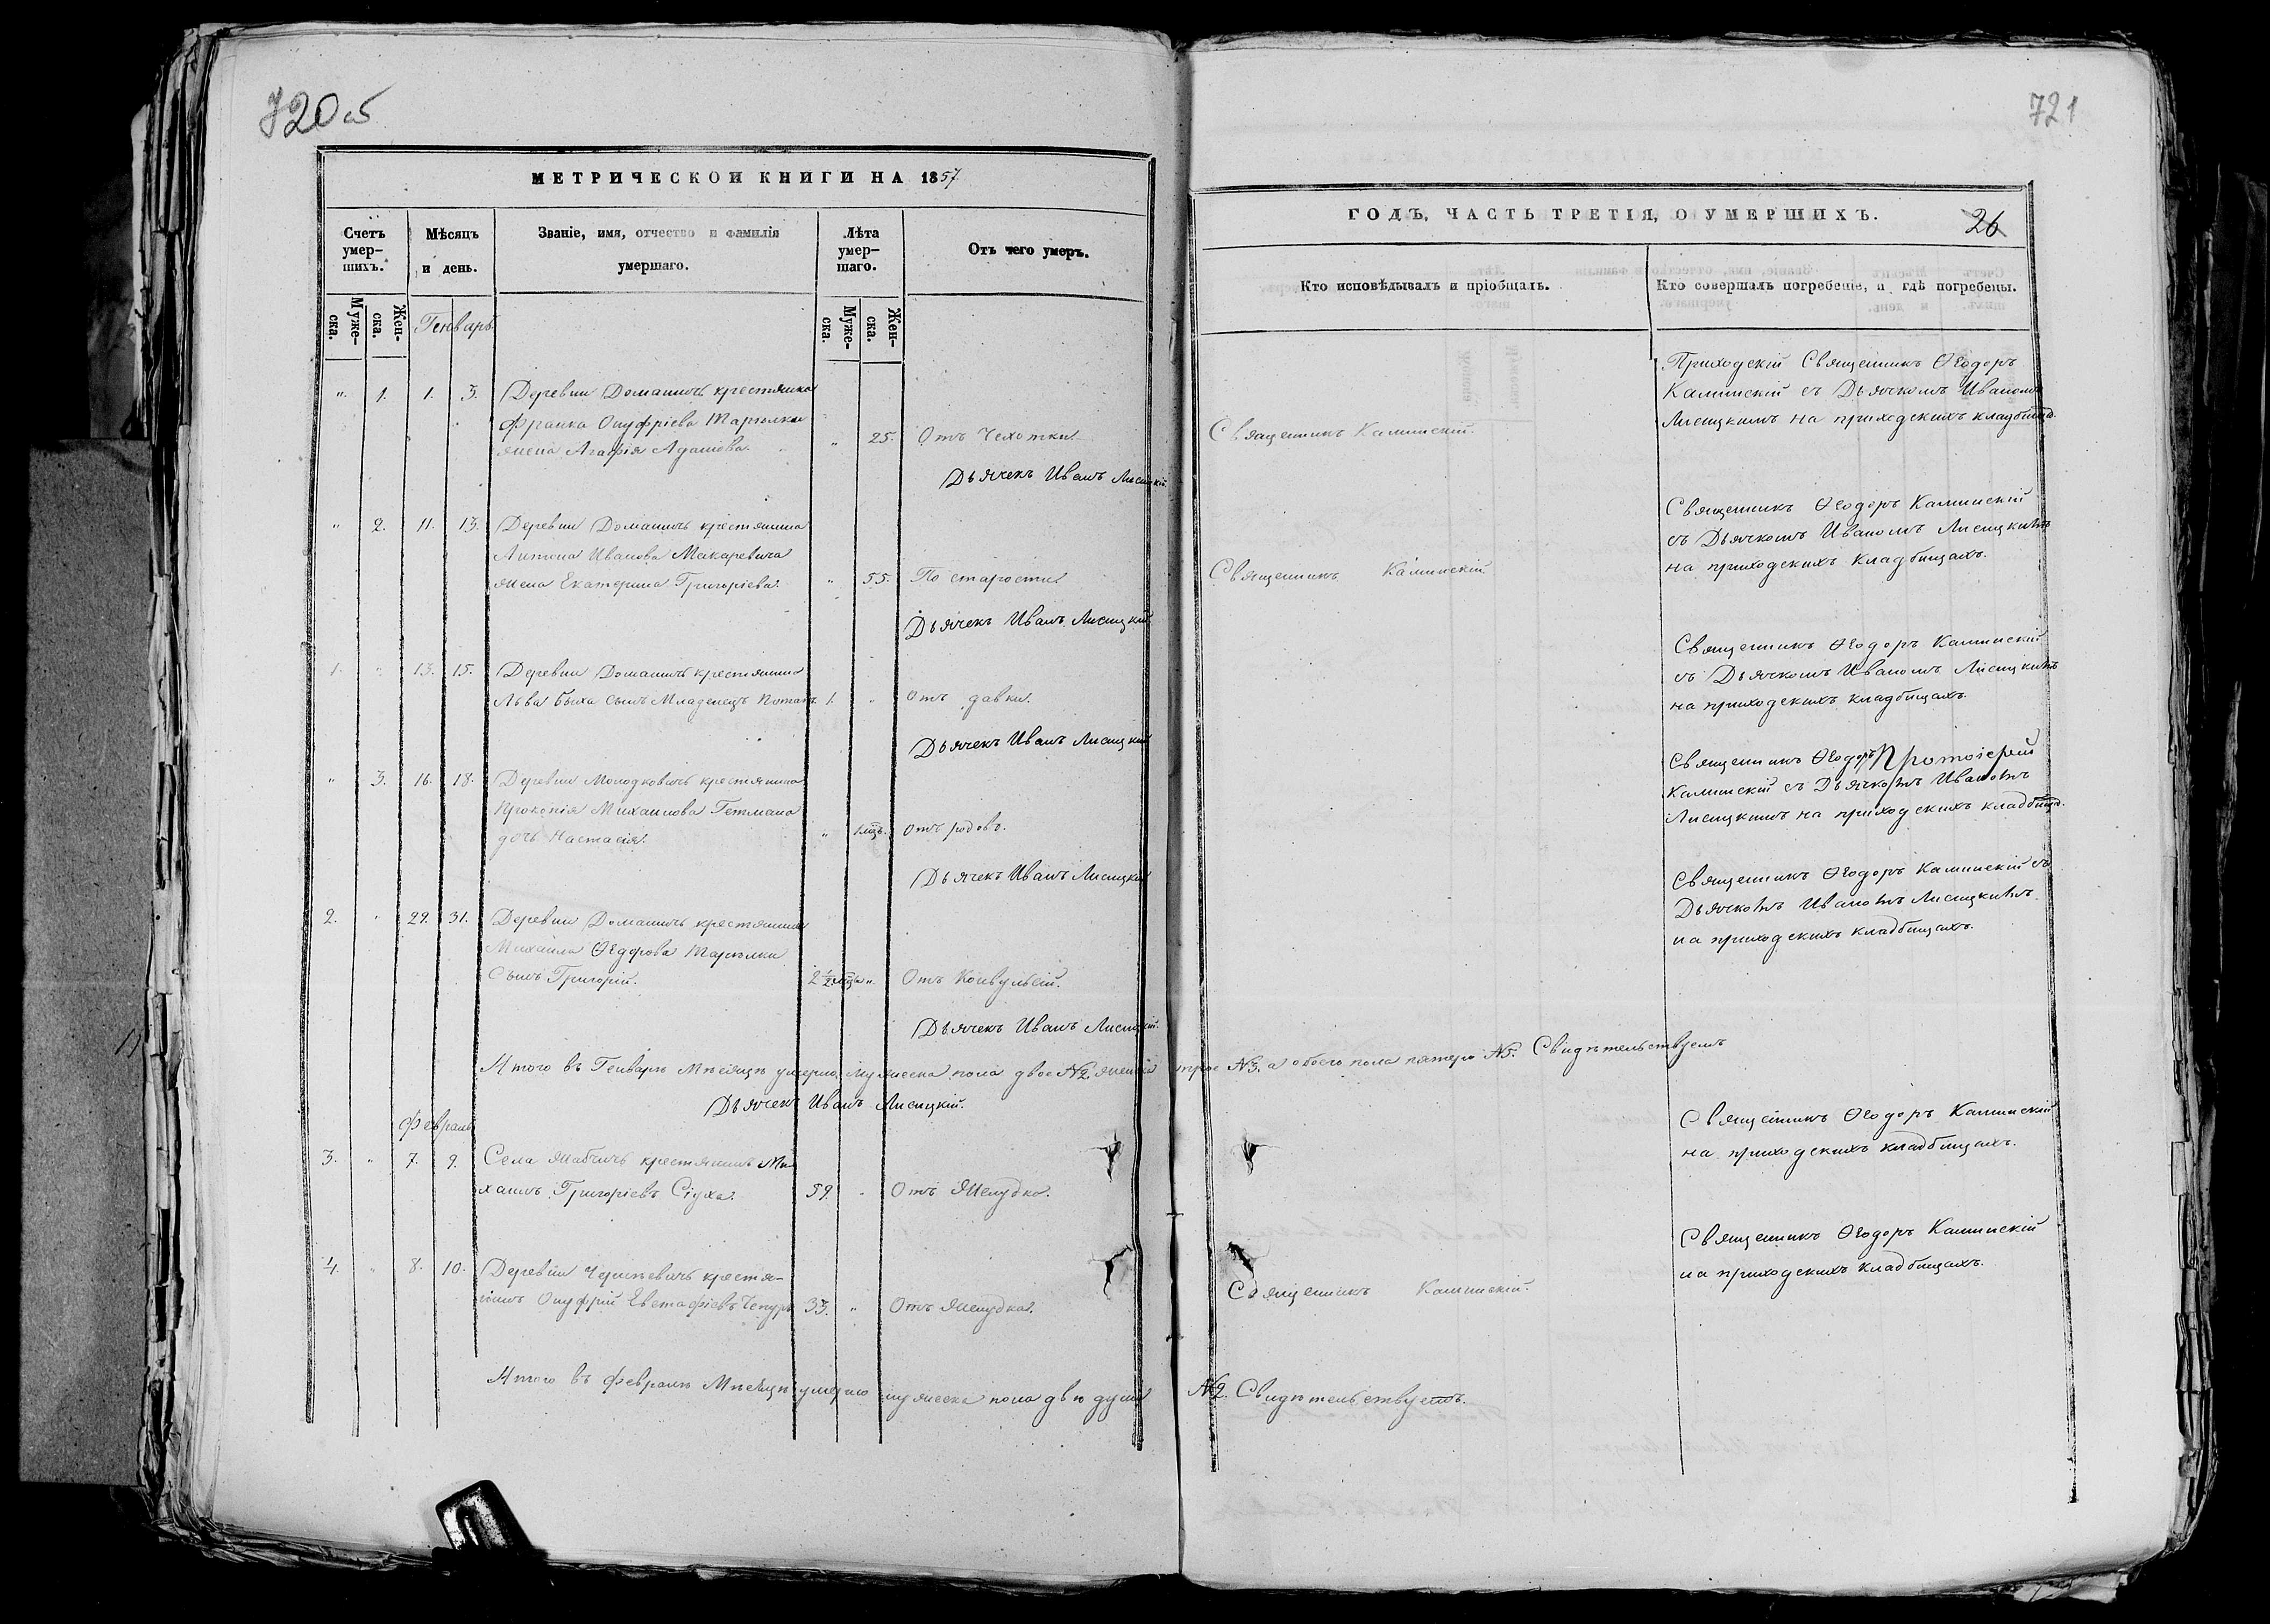 720 об
МЕТРИЧЕСКОЙ КНИГИ НА 1857
Счетъ умер-шихъ.
Мѣсяцъ и день.
Званіе, имя, отчество и фамилія умершаго.
Лѣта умер-шаго.
Отъ чего умеръ.
Муже-ска.
Жен-ска.
Генварь
Муже-ска.
Жен-ска.
" 1. 1. 3. Деревни Доманичъ крестянина
Франка Онуфріева Тарелки
жена Агафія Адамова. " 25. Отъ Чехотки.
Дьячекъ Иванъ Лисицкій.
" 2. 11. 13. Деревни Доманичъ крестянина
Антона Иванова Макаревича
жена Екатерина Григоріева. " 55. По старости
Дьячекъ Иванъ Лисицкій
1. " 13. 15. Деревни Доманичъ крестянина
Льва Быха сынъ Младенецъ Потапъ 1. " отъ давки.
Дьячекъ Иванъ Лисицкій
" 3. 16. 18. Деревни Молодковичъ крестянина
Прокопія Михаилова Гетмана
дочь Настасія. " 1 мѣц. отъ родовъ.
Дьячекъ Иванъ Лисицкій
2. " 29. 31. Деревни Доманичъ крестянина
Михаила Ѳедорова Тарелки
Сынъ Григорій. 2 1/2 мѣцы " Отъ Конвульсій.
Дьячекъ Иванъ Лисицкій.
Итого въ Генварѣ Мѣсяцѣ умерло мужеска пола двое №2. женска трое №3. а обоего пола пятеро №5. Свидѣтельствуемъ
Дьячекъ Иванъ Лисицкій.
Февраль
3. " 7. 9. Села Жабчичъ крестянинъ Ми-
хаилъ Григоріевъ Сіуха. 59. " Отъ Желудка.
4. " 8. 10. Деревни крестя-
нинъ Онуфрій Евстафіевъ 33. " Отъ Желудка.
Итого въ Февралѣ Мѣсяцѣ умерло мужеска пола двѣ души №2. Свидѣтельствуетъ.
721
ГОДЪ, ЧАСТЬ ТРЕТІЯ, О УМЕРШИХЪ.
26
Кто исповѣдывалъ и пріобщалъ.
Кто совершалъ погребеніе, и гдѣ погребены.
Приходскій Священникъ Ѳеодоръ
Калинскій съ Дьячкомъ Иваномъ
Лисицкимъ на приходскихъ кладбищахъ.
Священникъ Калинскій.
Священникъ Ѳеодоръ Калинскій
съ Дьячкомъ Иваномъ Лисицкимъ
на приходскихъ Кладбищахъ.
Священникъ Калинскій
Священникъ Ѳеодоръ Калинскій
съ Дьячкомъ Иваномъ Лисицкимъ
на приходскихъ кладбищахъ.
Священникъ Ѳеодоръ Протоіерей
Калинскій съ Дьячкомъ Иваномъ
Лисицкимъ на приходскихъ кладбищахъ.
Священникъ Ѳеодоръ Калинскій съ
Дьячкомъ Иваномъ Лисицкимъ
на приходскихъ кладбищахъ.
Священникъ Ѳеодоръ Калинскій
на приходскихъ кладбищахъ.
Священникъ Ѳеодоръ Калинскій
на приходскихъ кладбищахъ.
Священникъ Калинскій.